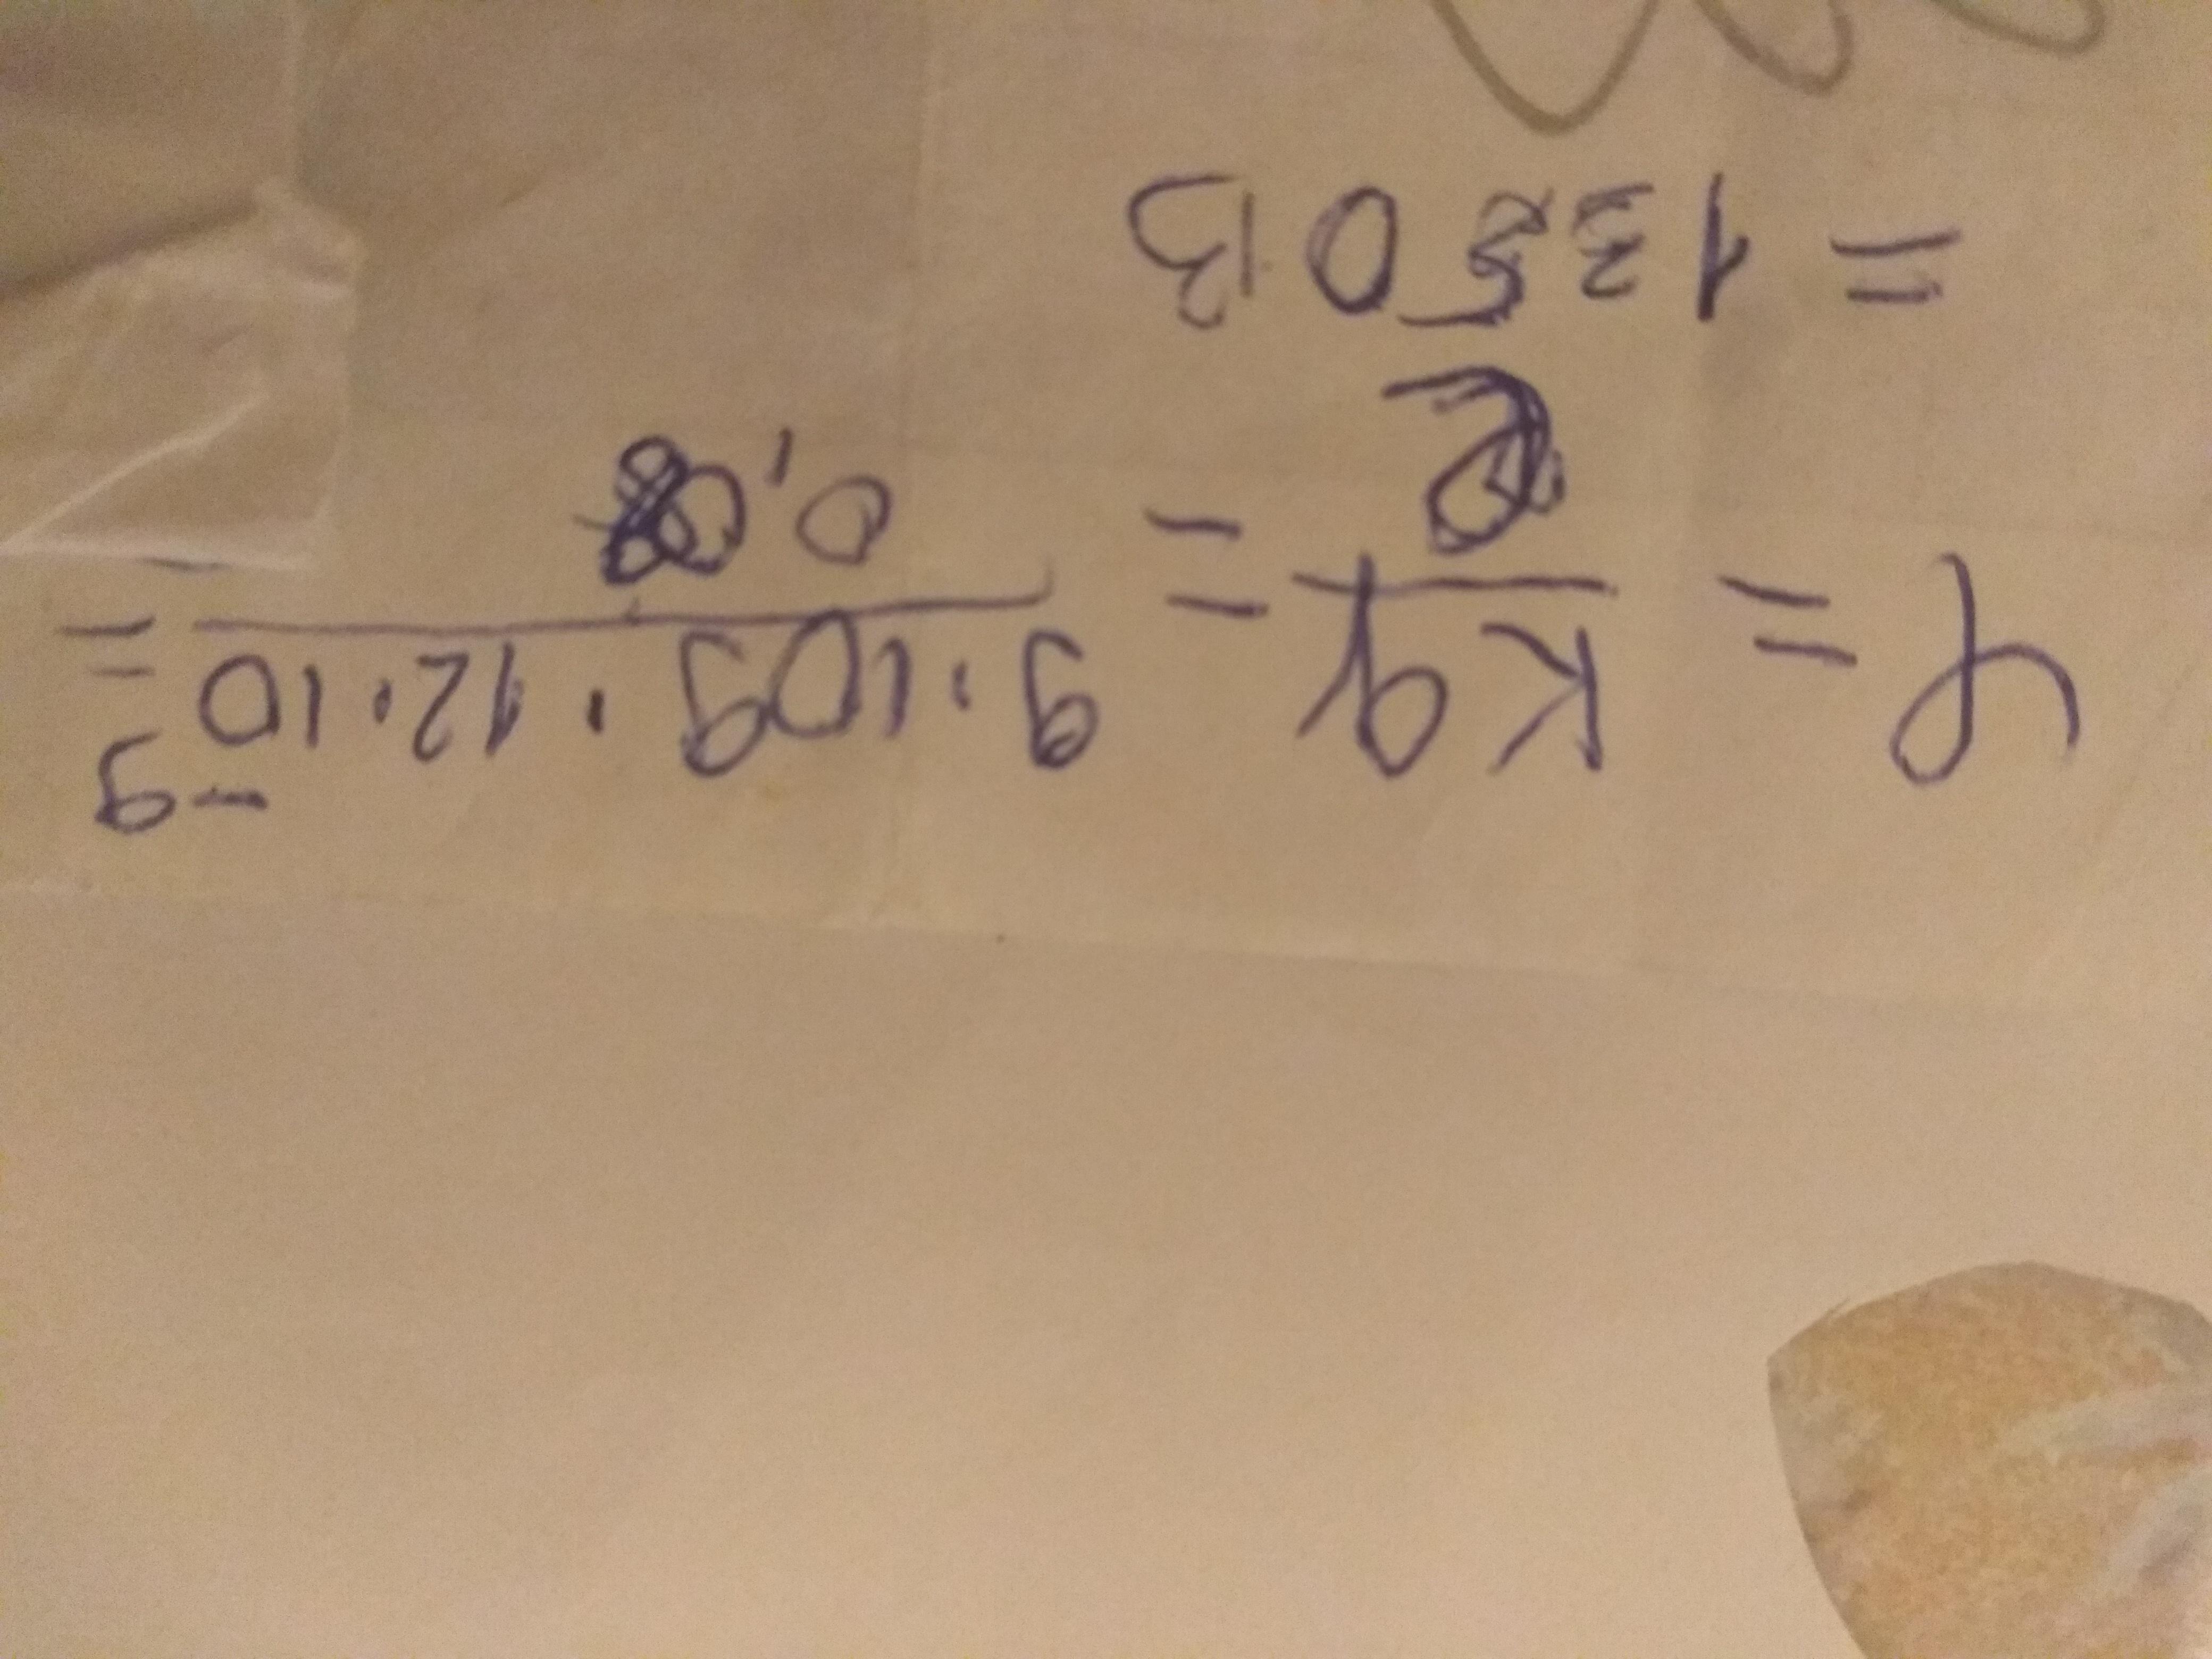 φ = kq/r = 9·10⁹ · 12·10⁻⁹/0,08 =
= 1350 В